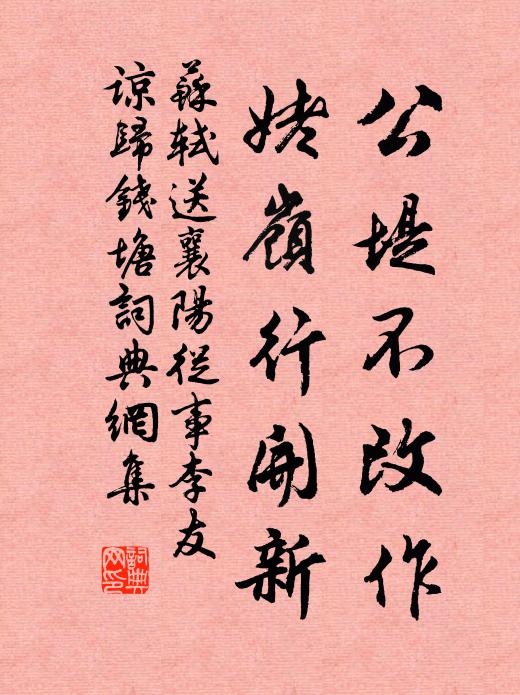 公堤不改作
姥嶺行開新
蘇軾送襄陽從事李友
諒歸錢塘詞典網集
詞典網印